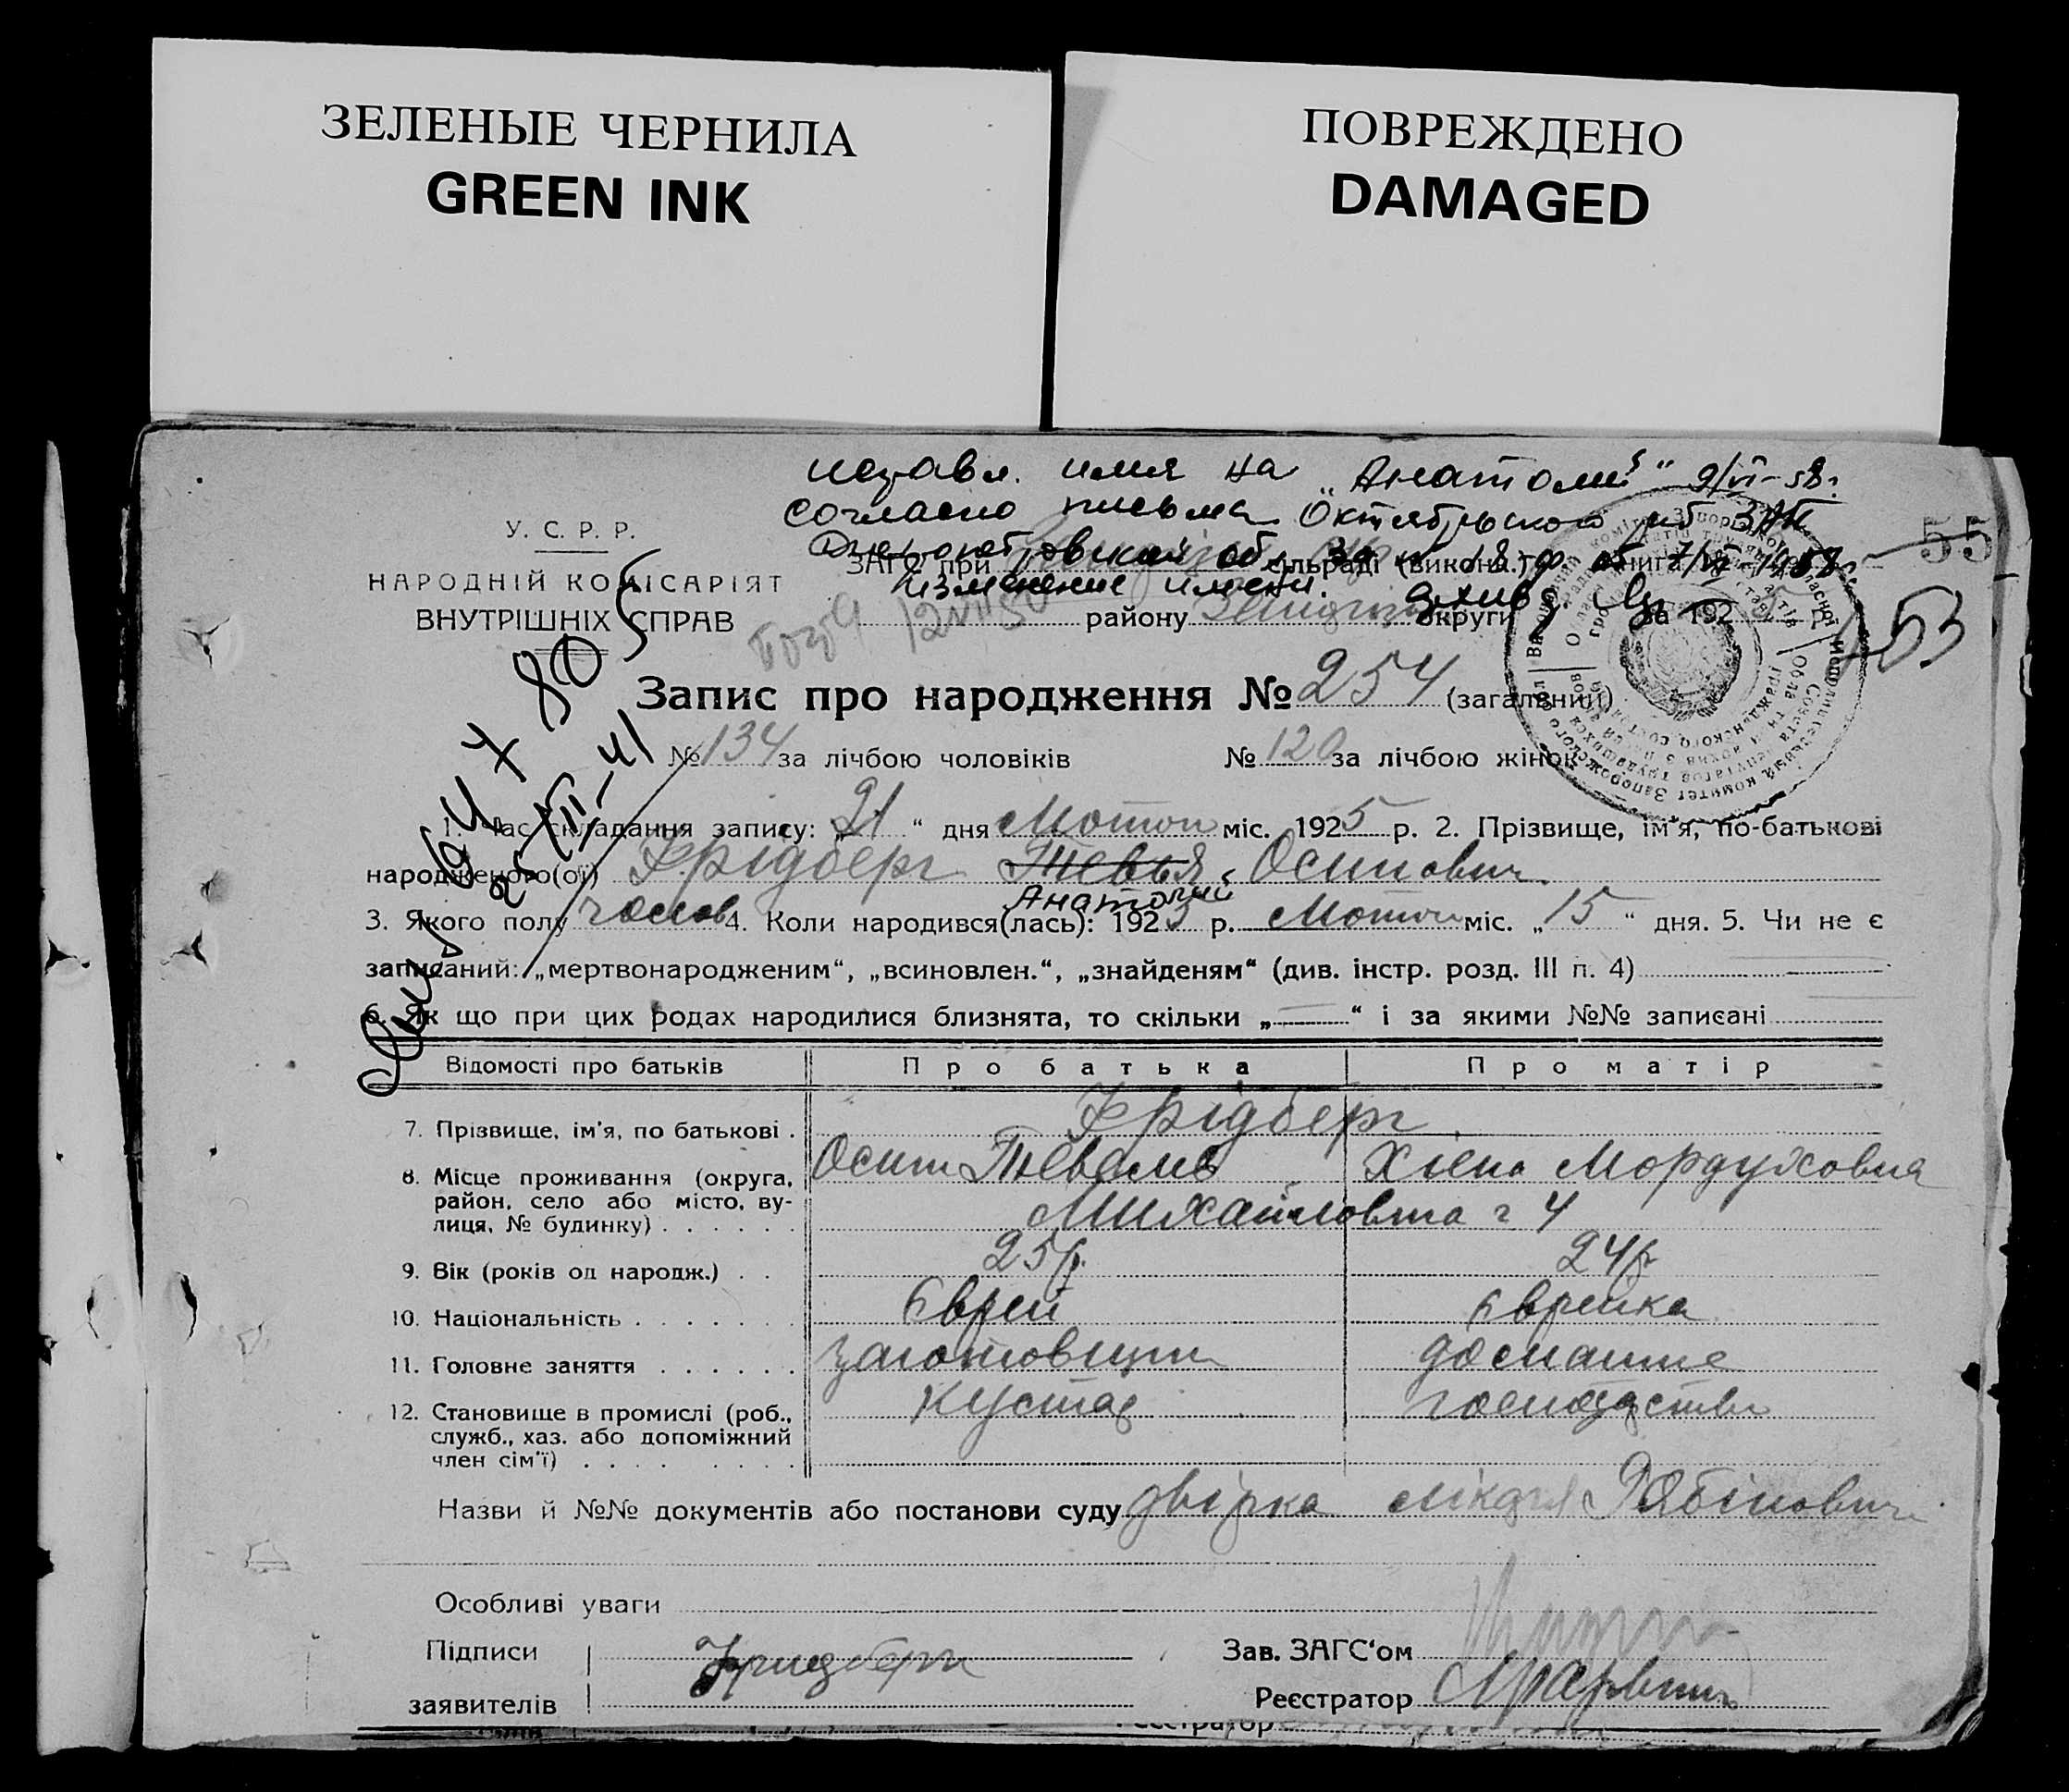 ЗЕЛЕНЫЕ ЧЕРНИЛА
GREEN INK
ПОВРЕЖДЕНО
DAMAGED
исправл. имя на „Анатолий" 9/VI-58г.
согласно письма Октябрьского
55
У. С. Р. Р.
НАРОДНІЙ КОМІСАРІЯТ
ВНУТРІШНІХ СПРАВ
ЗАГС при сільраді (викона.) книга
изменение имени.
району округи за 192
53
Запис про народження № 254 (загальний)
№ 134 за лічбою чоловіків № 120 за лічбою жінок
1. Час складання запису: „21" дня Лютого міс. 1925 р. 2. Прізвище, ім'я, по-батькові
народженого(ої) Фрідберг Тевья Осипович
Анатолий
3. Якого полу чолов 4. Коли народився(лась): 1925 р. Лютого міс. „15" дня. 5. Чи не є
записаний: „мертвонародженим", „всиновлен.", „знайденям" (див. інстр. розд. III п. 4)
6. Як що при цих родах народилися близнята, то скільки „—" і за якими №№ записані
Відомості про батьків Про батька Про матір
7. Прізвище, ім'я, по батькові . Фрідберг
Осип Хиена Мордуховна
8. Місце проживання (округа, район, село або місто, вулиця, № будинку) . . . . . . Михайловка 4
9. Вік (років од народж.) . . 25 р. 24 р.
10. Національність . . . . . . . Єврей Єврейка
11. Головне заняття . . . . . . заготовщик домашне
12. Становище в промислі (роб., служб., хаз. або допоміжний член сім'ї) . . . . . . . . кустар господарство
Назви й №№ документів або постанови суду довірка лікаря Рабінович
Особливі уваги
Підписи Фридберг Зав. ЗАГС'ом
заявителів Реєстратор
Реєстратор